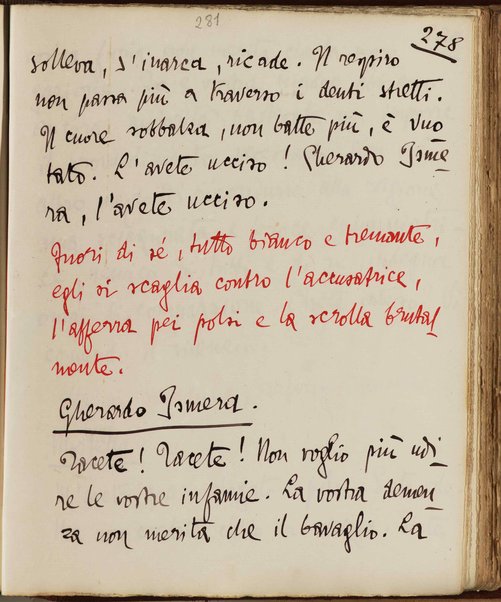 281
278
solleva, s'inarca, ricade. Il respiro
non passa più a traverso i denti stretti.
Il cuore sobbalza, non batte più, è vuo
tato. L'avete ucciso! Gherardo Isme
ra, l'avete ucciso.
Fuori di sé, tutto bianco e tremante,
egli si scaglia contro l'accusatrice,
l'afferra pei polsi e la scrolla brutal
mente.
Gherardo Ismera.
Tacete! Tacete! Non voglio più udi
re le vostre infamie. La vostra demen
za non merita che il bavaglio. La